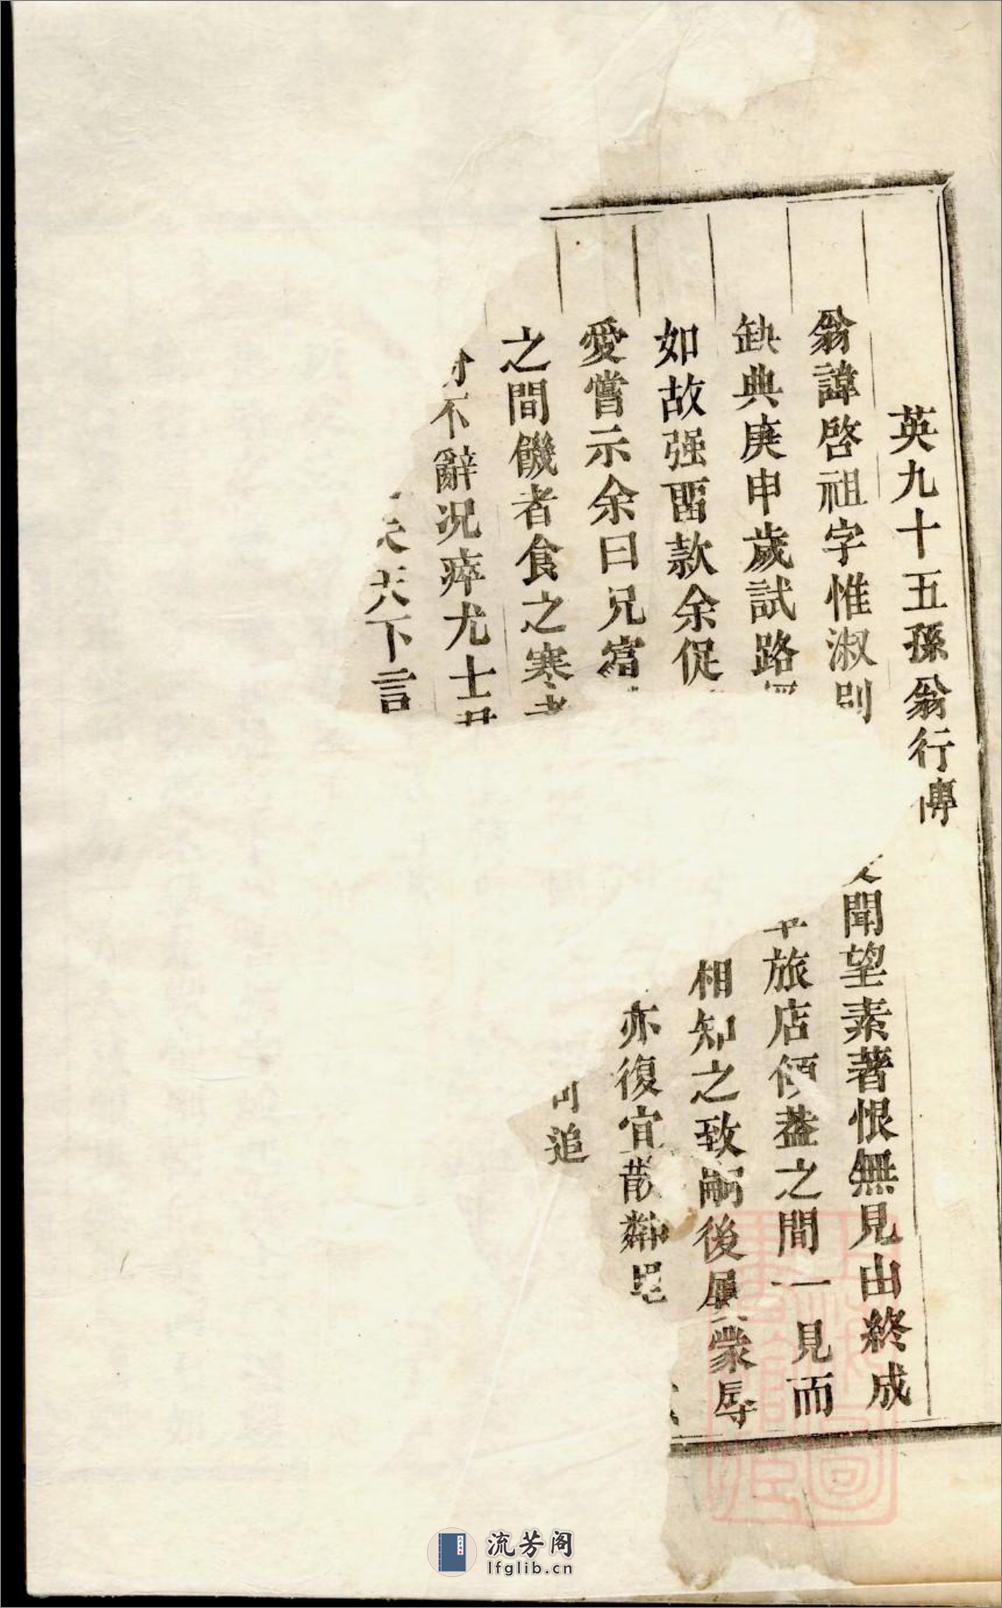 英九十五孫翁行傳
翁諱啓祖字惟淑別 聞望素著恨無見由終成
缺典庚申歲試路 旅店傾葢之間一見而
如故强畱款余促 相知之致嗣後屢蒙辱
愛嘗示余曰兄富 亦復宜散鄰里
之間饑者食之寒者 追
不辭况瘁尤士君
天下言
流芳阁
lfglib.cn